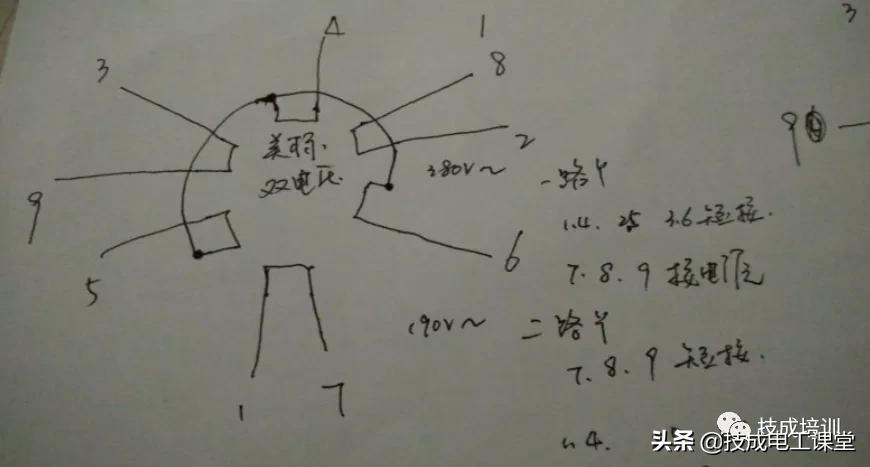 3
4
1
3
8
9
美标.
双电压
2
380V~
一路Y
9
1.4. 25 3.6 短接.
6
5
7.8.9 接电源
190V~ 二路Y
7.8.9 短接.
1 7
1.4.
技成培训
头条 @技成电工课堂